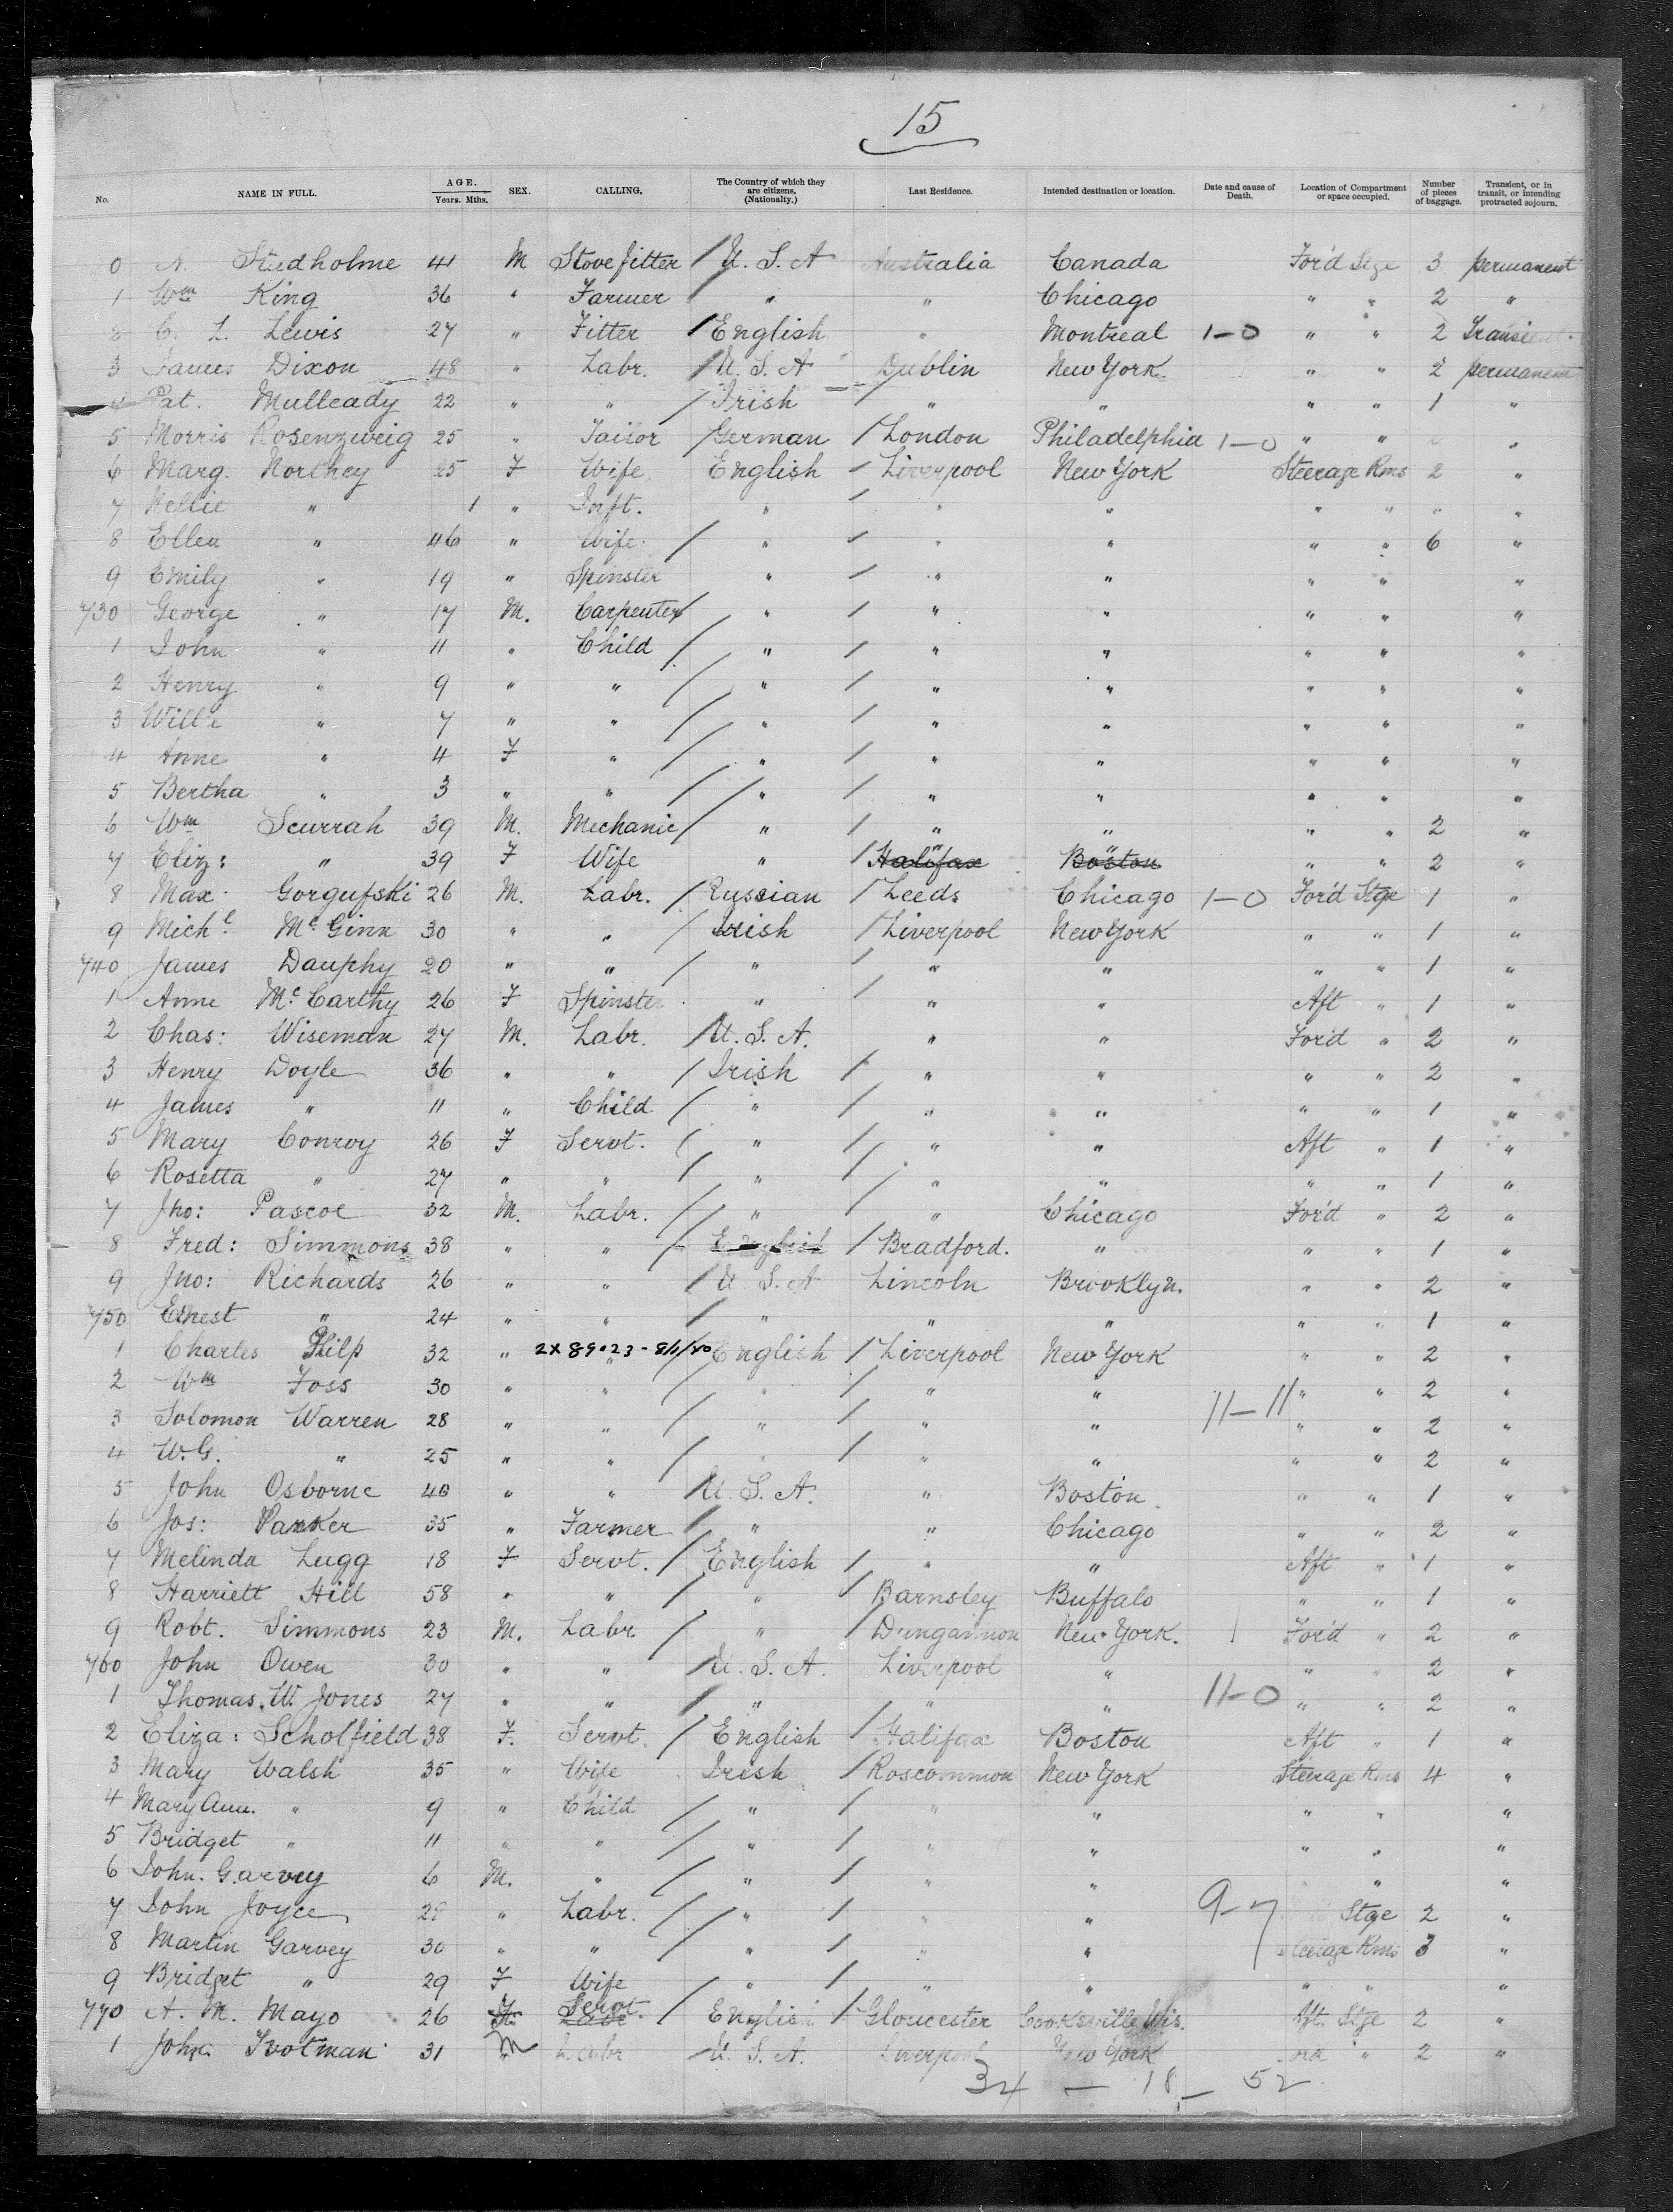 15
No. NAME IN FULL. AGE. Years. Mths. SEX. CALLING. The Country of which they are citizens. (Nationalty.) Last Residence. Intended destination or location. Date and cause of Death. Location of Compartment or space occupied. Number of pieces of baggage. Transient, or in transit, or intending protracted sojourn.
0 A. Studholme 41 M Stove fitter / U. S. A Australia Canada For'd Stge 3 permanent
1 Wm King 36 " Farmer / " " Chicago " " 2 "
2 C. L. Lewis 27 " Fitter / English " Montreal 1-0 " " 2 Transient.
3 James Dixon 48 " Labr. / U. S. A Dublin New York " " 2 permanent
4 Pat. Mulleady 22 " " / Irish " " " " 1 "
5 Morris Rosenzweig 25 " Tailor / German / London Philadelphia 1-0 " " "
6 Marg. Northey 25 F Wife English / Liverpool New York Steerage Rms 2 "
7 Nellie " 1 " Inft. " / " " " " " "
8 Ellen " 46 " Wife / " / " " " " 6 "
9 Emily " 19 " Spinster " / " " " " "
730 George " 17 M. Carpenter / " / " " " " "
1 John " 11 " Child / " / " " " " "
2 Henry " 9 " " / " / " " " " "
3 Will'e " 7 " " / " / " " " " "
4 Anne " 4 F " / " / " " " " "
5 Bertha " 3 " " / " / " " " " "
6 Wm Scurrah 39 M. Mechanic / " / " " " " 2 "
7 Eliz: " 39 F Wife " / Halifax Boston " " 2 "
8 Max Gorgufski 26 M. Labr. / Russian / Leeds Chicago 1-0 For'd Stge 1 "
9 Michl McGinn 30 " " / Irish / Liverpool New York " " 1 "
740 James Dauphy 20 " " / " / " " " " 1 "
1 Anne McCarthy 26 F Spinster " / " " Aft " 1 "
2 Chas: Wiseman 27 M. Labr. / U. S. A. " " For'd " 2 "
3 Henry Doyle 36 " " / Irish / " " " " 2 "
4 James " 11 " Child / " / " " " " 1 "
5 Mary Conroy 26 F Servt. / " / " " Aft " 1 "
6 Rosetta " 27 " " / " / " " " " 1 "
7 Jno: Pascoe 32 M. Labr. / " / " Chicago For'd " 2 "
8 Fred: Simmons 38 " " / English / Bradford. " " " 1 "
9 Jno: Richards 26 " " / U. S. A Lincoln Brooklyn. " " 2 "
750 Ernest " 24 " " / " " " " " 1 "
1 Charles Philp 32 " 2X89023- " / English / Liverpool New York " " 2 "
2 Wm Foss 30 " " / " / " " " " 2 "
3 Solomon Warren 28 " " / " / " " 11-11 " " 2 "
4 W. G. " 25 " " / " / " " " " 2 "
5 John Osborne 40 " " / U. S. A. " Boston " " 1 "
6 Jos: Parker 35 " Farmer / " " Chicago " " 2 "
7 Melinda Lugg 18 F Servt. / English / " " Aft " 1 "
8 Harriett Hill 58 " " / " / Barnsley Buffalo " " 1 "
9 Robt. Simmons 23 M. Labr / " / Dungannon New York. 1 For'd " 2 "
760 John Owen 30 " " / U. S. A. Liverpool " " " 2 "
1 Thomas W. Jones 27 " " / " " " 11-0 " " 2 "
2 Eliza: Scholfield 38 F. Servt. / English / Halifax Boston Aft " 1 "
3 Mary Walsh 35 " Wife Irish / Roscommon New York Steerage Rms 4 "
4 Mary Ann. " 9 " Child / " / " " " " "
5 Bridget " 11 " " / " / " " " " "
6 John. Garvey 6 M. " / " / " " " "
7 John Joyce 28 " Labr. / " / " " 9-7 Stge 2 "
8 Martin Garvey 30 " " / " / " " Steerage Rms 3 "
9 Bridget " 29 F Wife " / " " " " "
770 A. M. Mayo 26 F. Servt. / English / Gloucester Cooksville Wis. Aft. Stge 2 "
1 John Trotman 31 M Labr / U. S. A. Liverpool New York For'd " 2 "
34 — 18 — 52